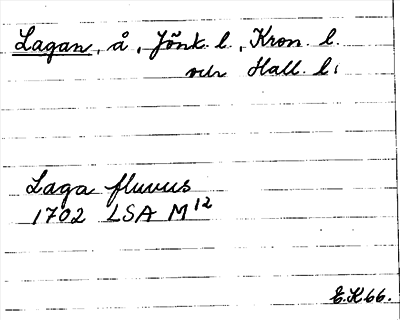 Lagan, å, Jönk. l., Kron. l.
och Hall. l.
Laga fluvius
1702 LSA M¹²
E.K. 66.